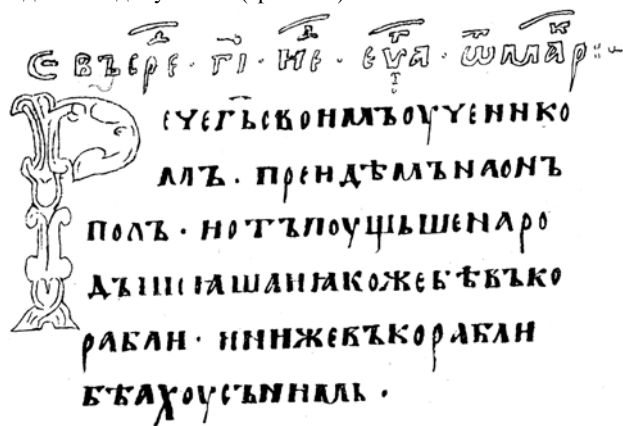 Є ВЪ ЕРЕⷣ · ГІ · НЕⷣ · ЕѴⷢА · Ѿ МАⷬР :·
РЕЧЕГ҃ЬСВОИМЪОУЧЕНИКО
МЪ . ПРЕИДѢМЪНАОНЪ
ПОЛЪ · ИОТЪПОУЩЬШЕНАРО
ДЪІПОꙖШАИꙖКОЖЕБѢВЪКО
РАБЛИ · ИИНИЖЕВЪКОРАБЛИ
БѢАХОУСЪНИМЬ .